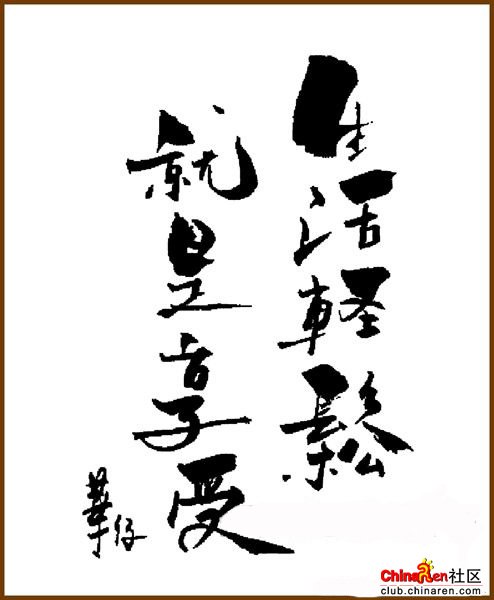 生活輕鬆
就是享受
華仔
ChinaRen社区
club.chinaren.com